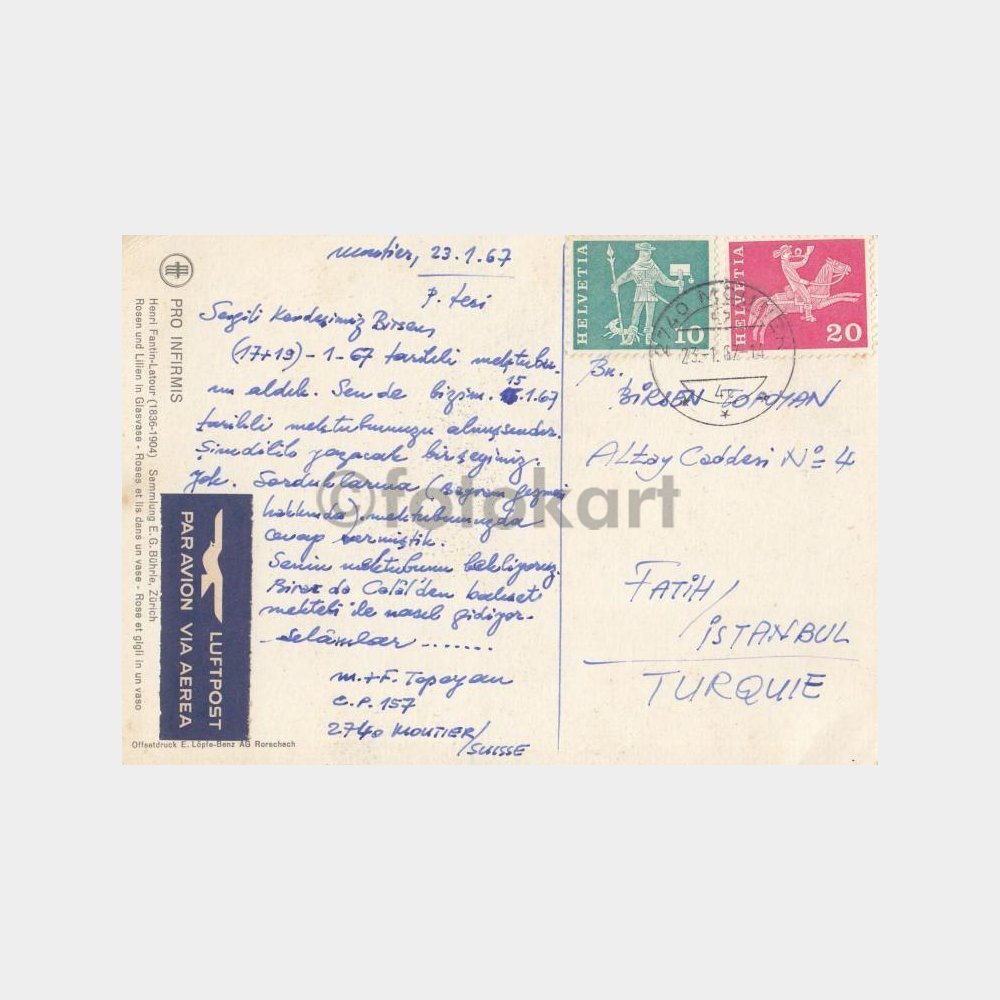 Moutier, 23.1.67
P. tesi
Sevgili Kardeşimiz Birsen,
(17+19)-1-67 tarihli mektubu-
nu aldık. Sen de bizim 15.1.67
tarihli mektubumuzu almışsındır.
Şimdilik yazacak bir şeyimiz
yok. Sorduklarına (Bayram gezmesi
hakkında) mektubumuzda
cevap vermiştik.
Senin mektubunu bekliyoruz.
Biraz da Celâl'den bahset
mektebi ile nasıl gidiyor.
Selâmlar .......
M.+F. Topoyan
C.P. 157
2740 MOUTIER/
SUISSE
HELVETIA
10
HELVETIA
20
2740 MOUTIER
23.-1.67-14
Bn.
BİRSEN TOPOYAN
Altay Caddesi No 4
FATİH/
İSTANBUL
TURQUIE
PRO INFIRMIS
Henri Fantin-Latour (1836-1904) Sammlung E. G. Bührle, Zürich
Rosen und Lilien in Glasvase - Roses et lis dans un vase - Rose et gigli in un vaso
LUFTPOST
PAR AVION VIA AEREA
Offsetdruck E. Löpfe-Benz AG Rorschach
©fotokart